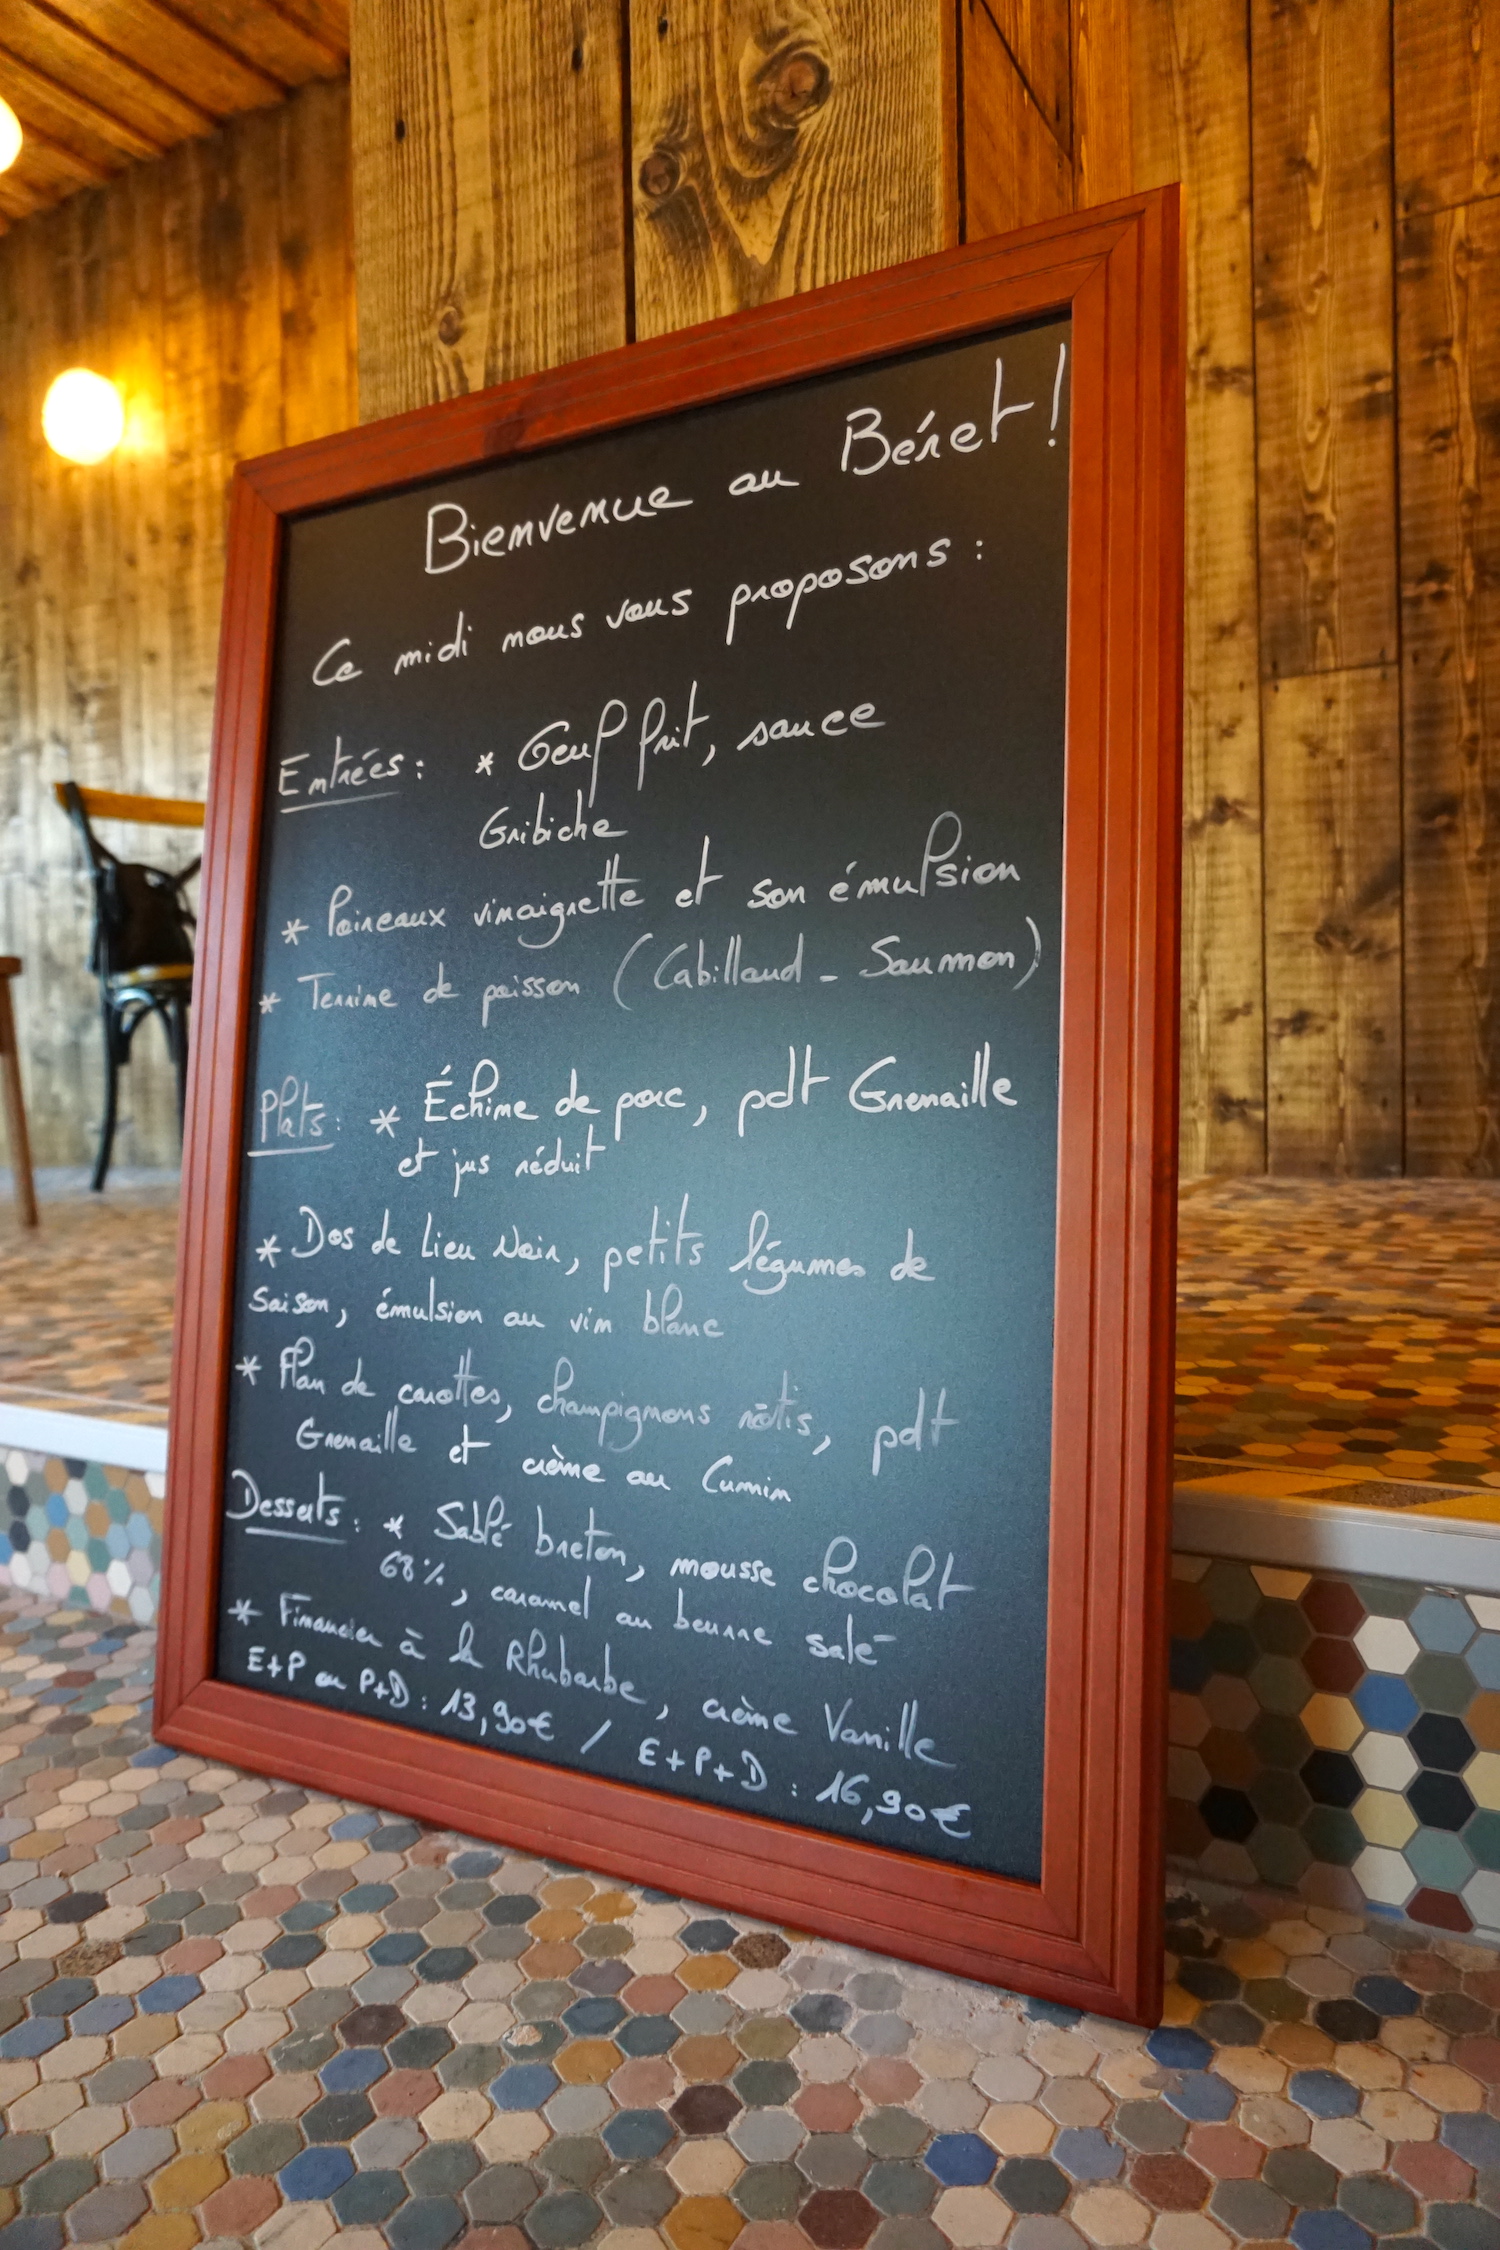 Bienvenue au Béret !
Ce midi nous vous proposons :
Entrées : * Oeuf frit, sauce
Gribiche
* Poireaux vinaigrette et son émulsion
* Terrine de poisson (Cabillaud - Saumon)
Plats : * Échine de porc, pdt Grenaille
et jus réduit
* Dos de Lieu Noir, petits légumes de
saison, émulsion au vin blanc
* Flan de carottes, champignons rôtis, pdt
Grenaille et crème au Cumin
Desserts : * Sablé breton, mousse chocolat
68%, caramel au beurre salé
* Financier à la Rhubarbe, crème Vanille
E+P ou P+D : 13,90€ / E+P+D : 16,90€